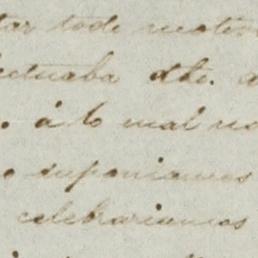 tar todo nuestro
ectuaba dho. a
. á lo cual no
suponiamos
celebrariamos